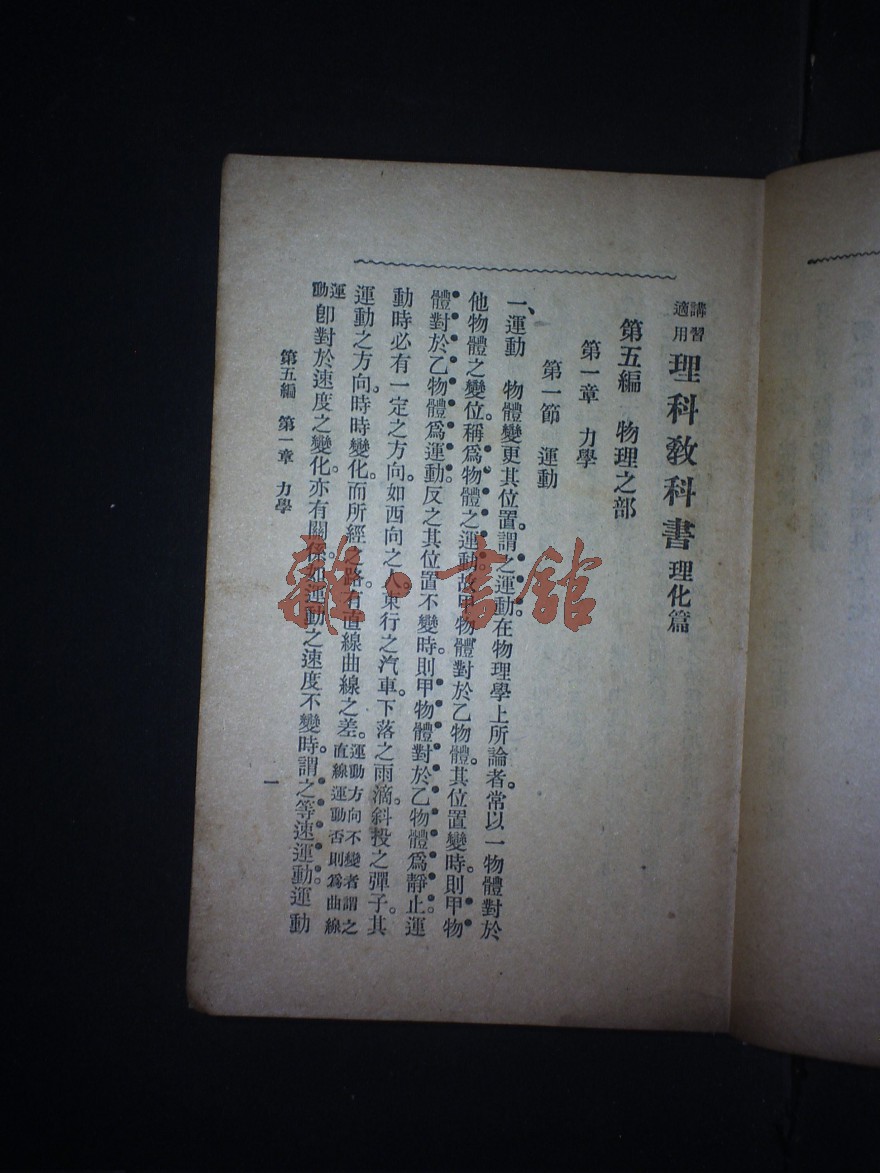 講習適用 理科教科書 理化篇
第五編 物理之部
第一章 力學
第一節 運動
一、運動 物體變更其位置。謂之運動。在物理學上所論者。常以一物體對於
他物體之變位。稱爲物體之運動。故甲物體對於乙物體。其位置變時。則甲物
體對於乙物體爲運動。反之其位置不變時。則甲物體對於乙物體爲靜止。運
動時必有一定之方向。如西向之人。東行之汽車。下落之雨滴。斜投之彈子。其
運動之方向。時時變化。而所經之路。有直線曲線之差。運動方向不變者謂之直線運動否則爲曲線
運動 卽對於速度之變化。亦有關係。如運動之速度不變時。謂之等速運動。運動
第五編 第一章 力學
一
雜·書館